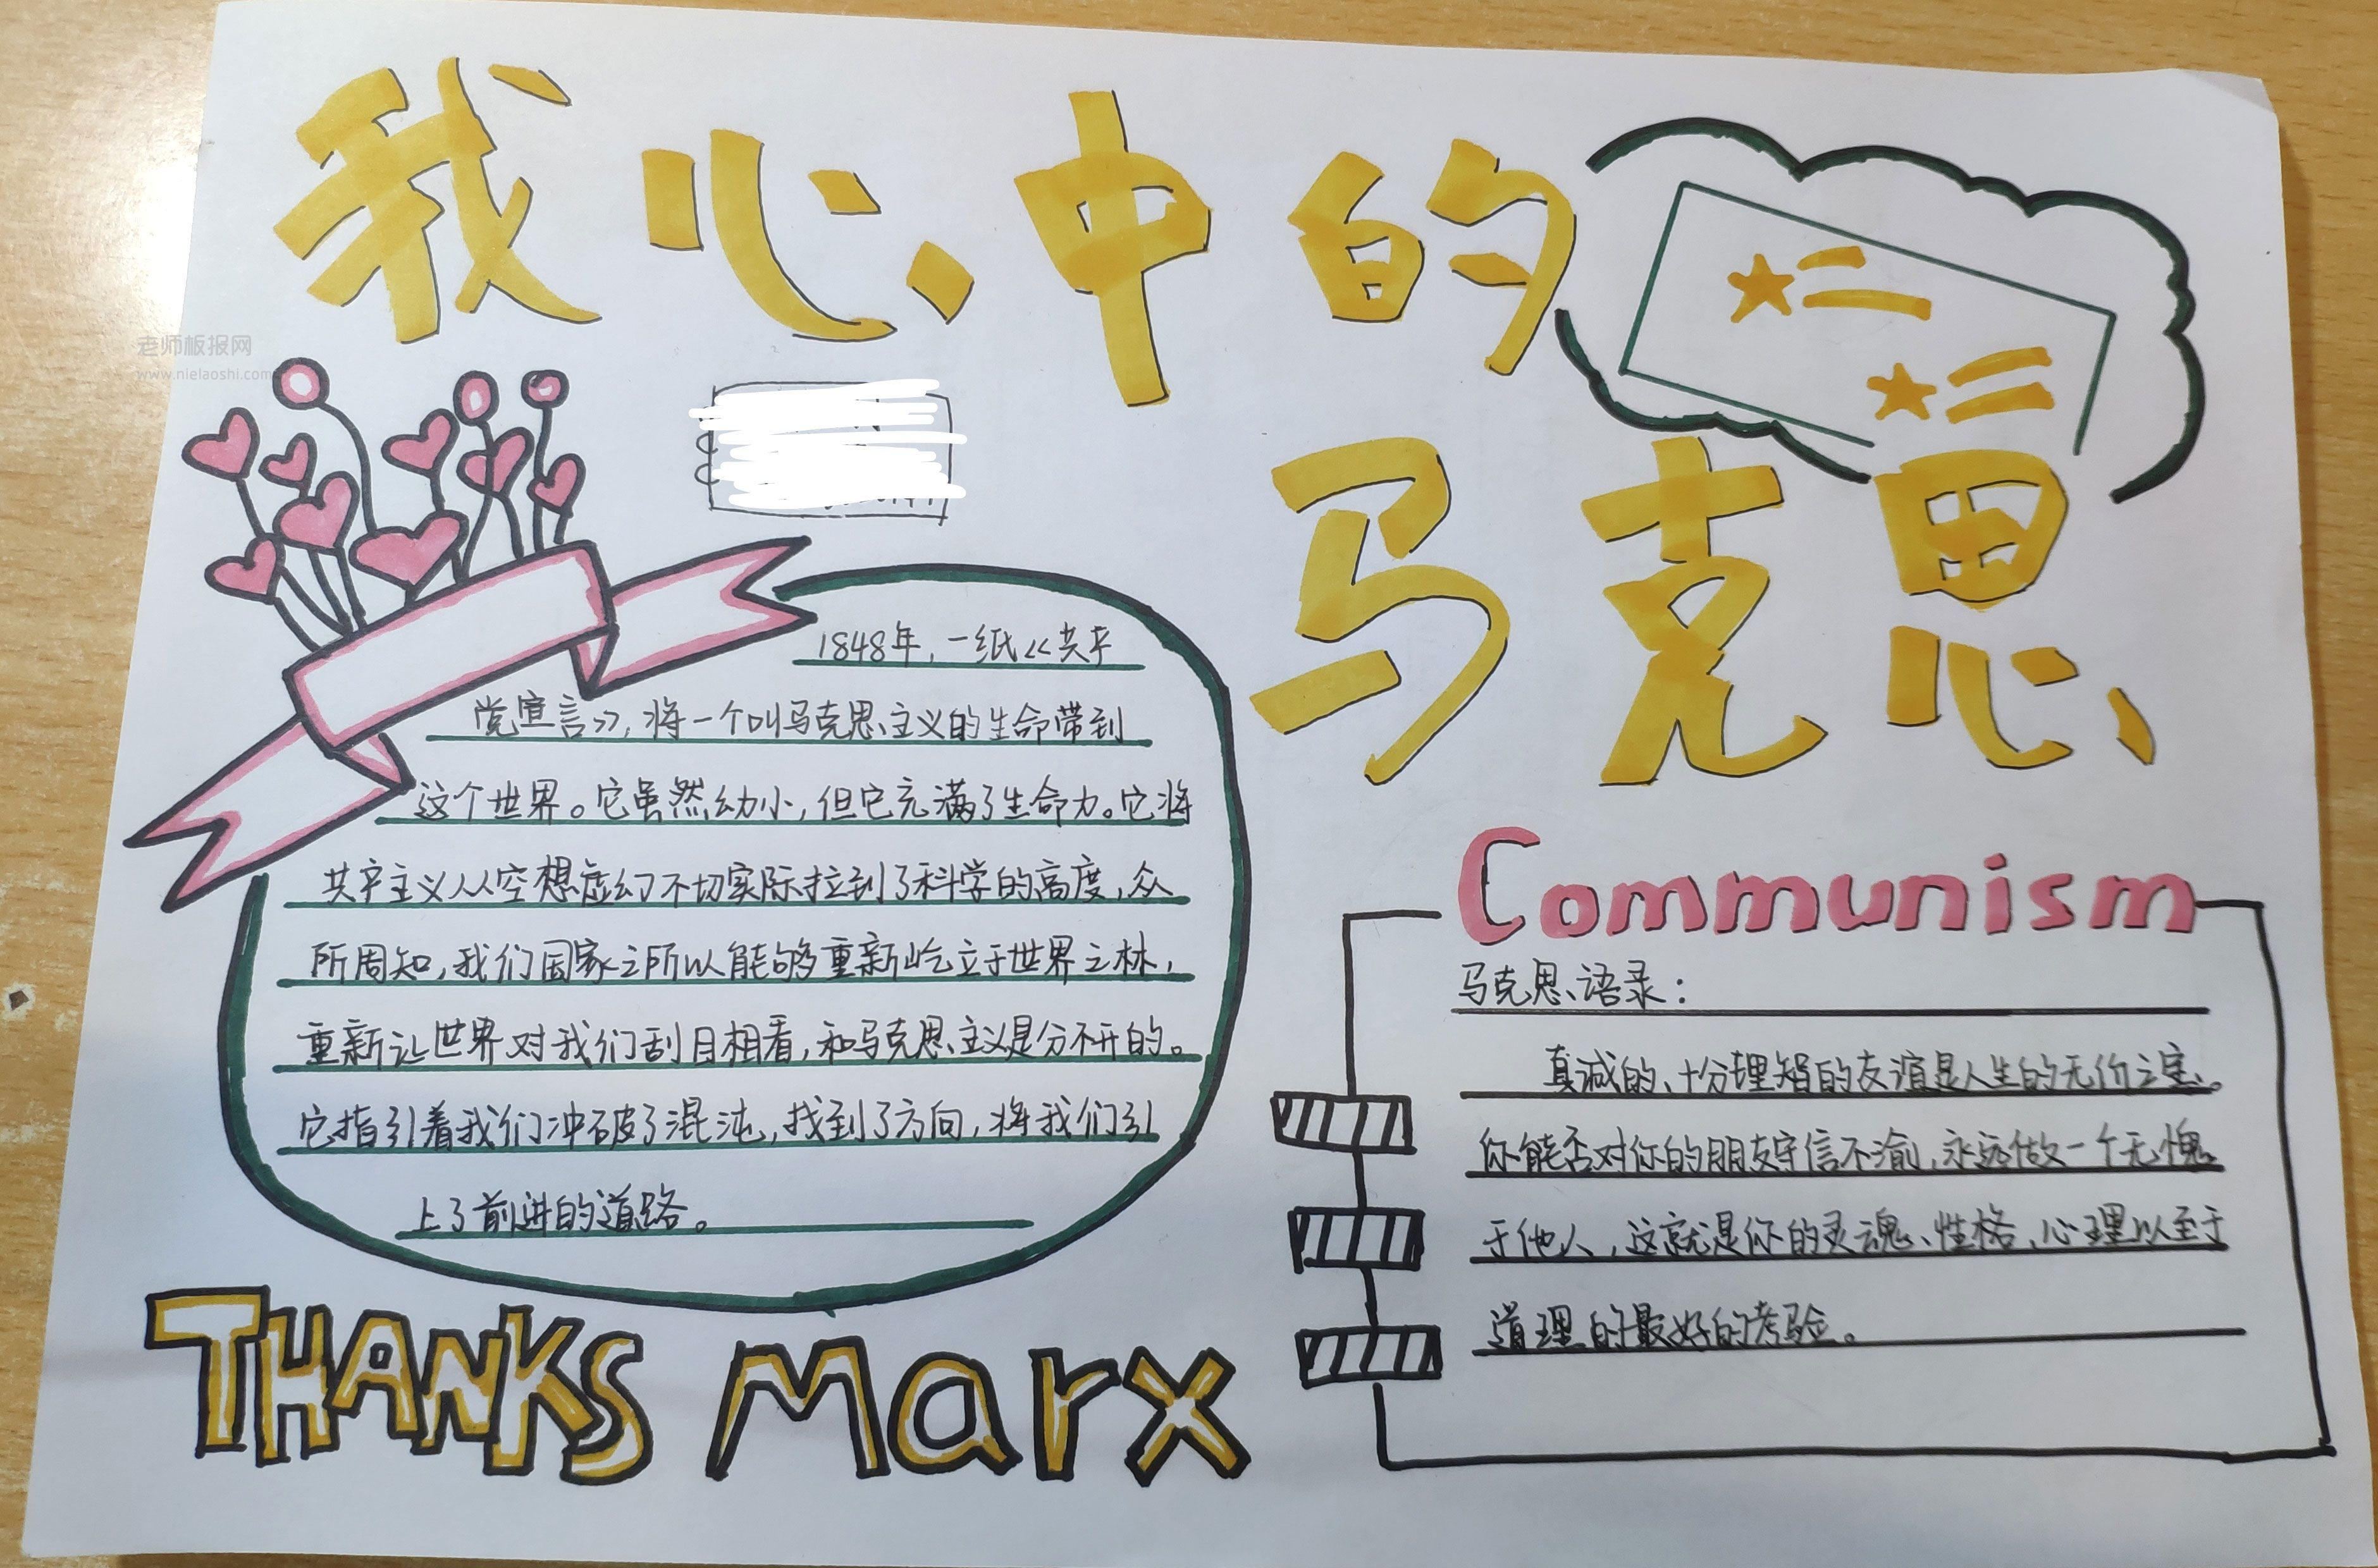 我心中的
马克思
老师板报网
www.nielaoshi.com
1848年,一纸《共产
党宣言》,将一个叫马克思主义的生命带到
这个世界。它虽然幼小,但它充满了生命力。它将
共产主义从空想虚幻不切实际拉到了科学的高度,众
所周知,我们国家之所以能够重新屹立于世界之林,
重新让世界对我们刮目相看,和马克思主义是分不开的。
它指引着我们冲破了混沌,找到了方向,将我们引
上了前进的道路。
Communism
马克思语录:
真诚的、十分理智的友谊是人生的无价之宝。
你能否对你的朋友守信不渝,永远做一个无愧
于他人,这就是你的灵魂、性格、心理以至于
道理的最好的考验。
THANKS Marx